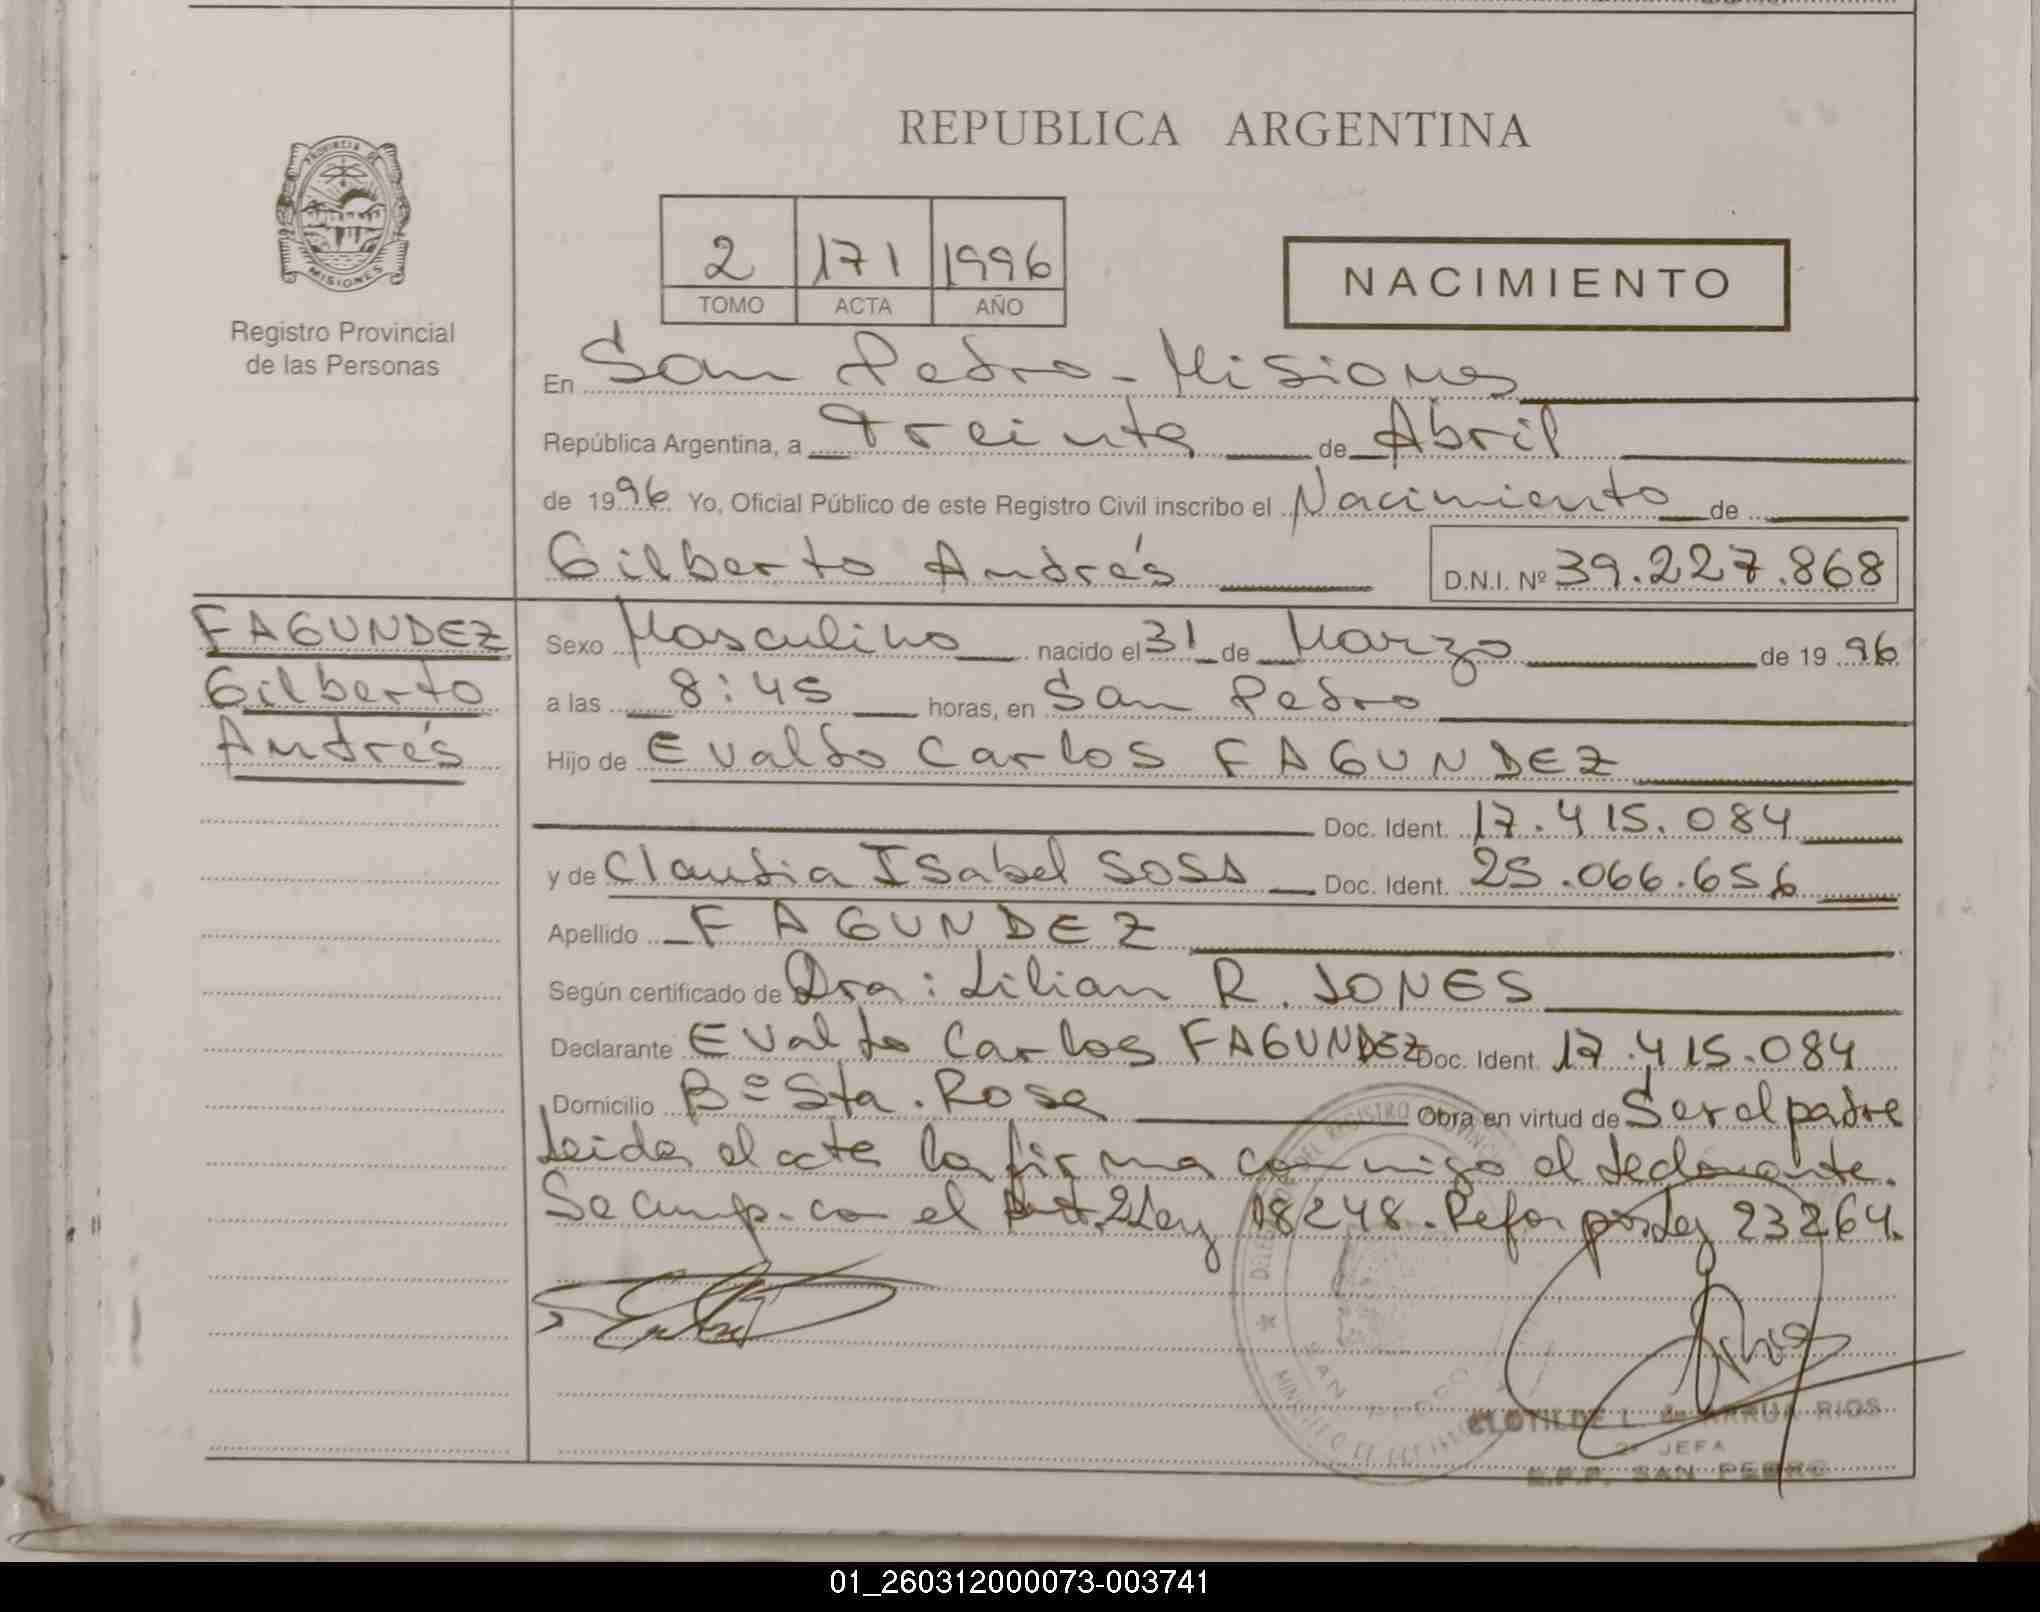 REPUBLICA ARGENTINA
PROVINCIA DE
MISIONES
Registro Provincial
de las Personas
2 171 1996
TOMO ACTA AÑO
NACIMIENTO
En San Pedro - Misiones
República Argentina, a Treinta de Abril
de 1996 Yo, Oficial Público de este Registro Civil inscribo el Nacimiento de
Gilberto Andrés D.N.I. Nº 39.227.868
FAGUNDEZ
Gilberto
Andrés
Sexo Masculino nacido el 31 de Marzo de 1996
a las 8:45 horas, en San Pedro
Hijo de Evaldo Carlos FAGUNDEZ
Doc. Ident. 17.415.084
y de Claudia Isabel SOSA Doc. Ident. 25.066.656
Apellido FAGUNDEZ
Según certificado de Dra: Lilian R. JONES
Declarante Evaldo Carlos FAGUNDEZ Doc. Ident. 17.415.084
Domicilio Bº Sta. Rosa Obra en virtud de Ser el padre
Leida el acta la firma conmigo el declarante.
Se cump. con el Art. 2 Ley 18248. Refor por Ley 23264.
SAN PEDRO
CLOTILDE L. de ARRUA RIOS
2º JEFA
SAN PEDRO
01_260312000073-003741